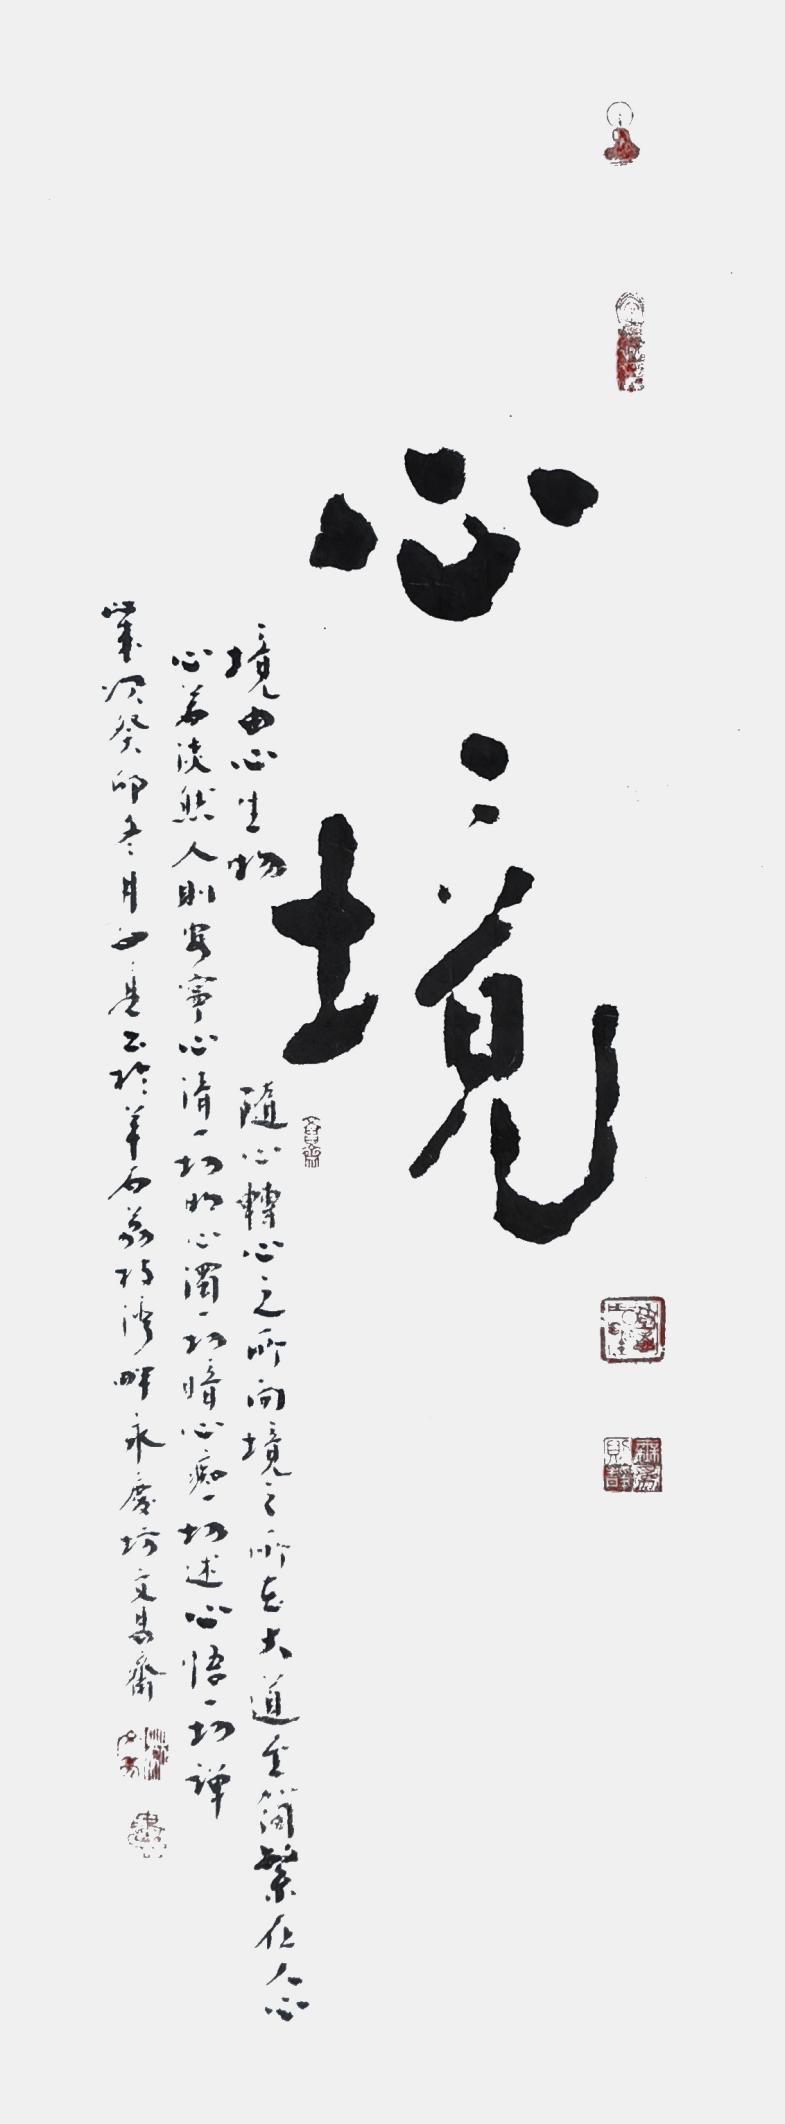 心境
境由心生物隨心轉心之所向境之所在大道至簡繁在人心
心若淡然人則安寧心清一切明心濁一切暗心痴一切迷心悟一切禅
歲次癸卯冬月 於羊石荔枝湾畔永慶坊文易齋